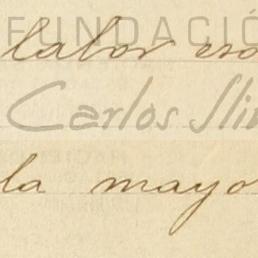 FUNDACIÓ
labor es
Carlos Sli
la mayo